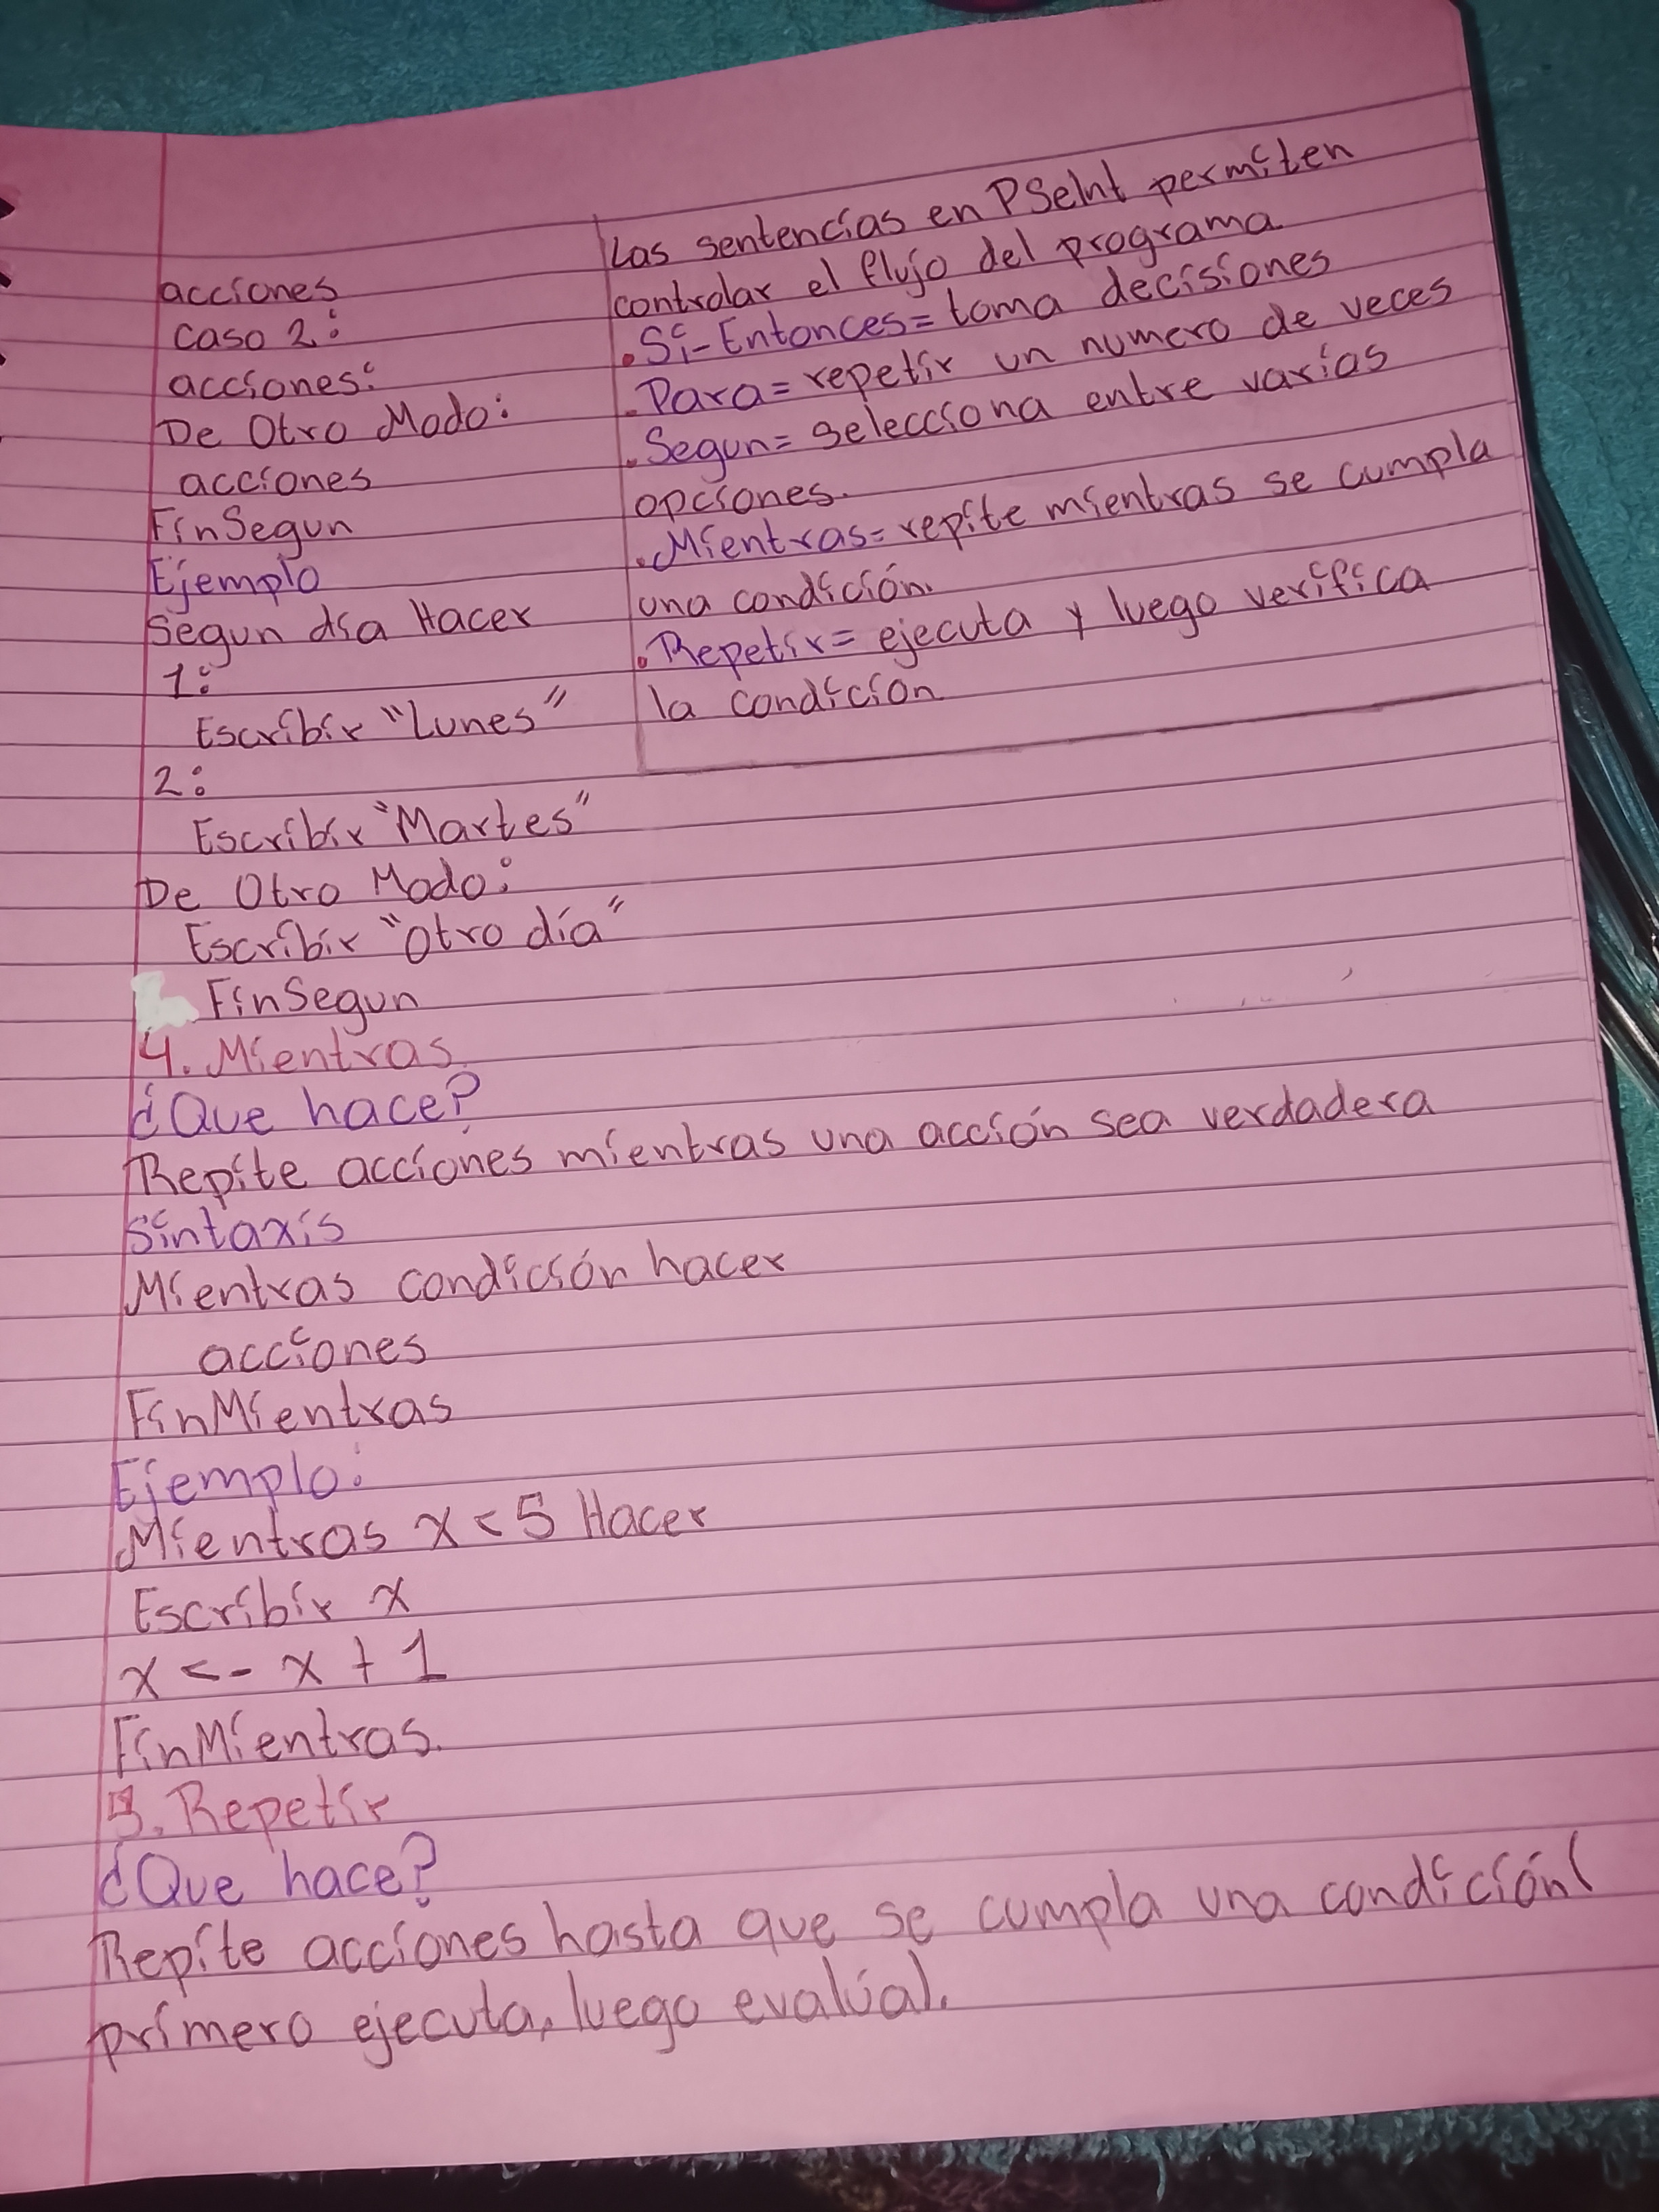 acciones
caso 2:
acciones:
De Otro Modo:
acciones
FinSegun
Ejemplo
Segun día Hacer
1:
Escribir "Lunes"
2:
Escribir "Martes"
De Otro Modo:
Escribir "Otro día"
FinSegun
Las sentencias en PSeInt permiten
controlar el flujo del programa.
• Si-Entonces= toma decisiones
• Para= repetir un numero de veces
• Segun= selecciona entre varias
opciones.
• Mientras= repite mientras se cumpla
una condición.
• Repetir= ejecuta y luego verifica
la condición
4. Mientras.
¿Que hace?
Repite acciones mientras una acción sea verdadera
Sintaxis
Mientras condición hacer
acciones
FinMientras
Ejemplo:
Mientras x < 5 Hacer
Escribir x
x <- x + 1
FinMientras.
5. Repetir
¿Que hace?
Repite acciones hasta que se cumpla una condición(
primero ejecuta, luego evalúa).